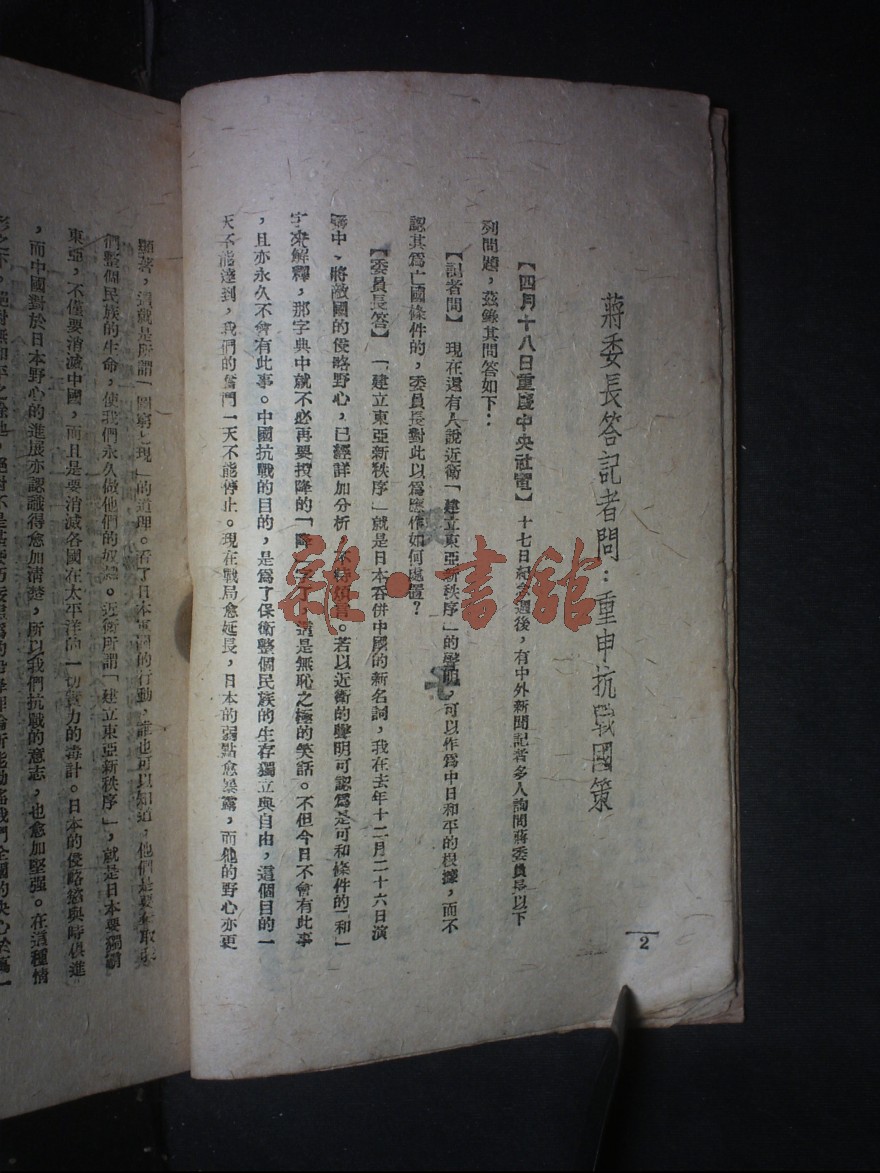 蔣委長答記者問：重申抗戰國策
【四月十八日重慶中央社電】 十七日紀念週後，有中外新聞記者多人詢問蔣委員長以下
列問題，茲錄其問答如下：
【記者問】 現在還有人說近衛「建立東亞新秩序」的聲明，可以作爲中日和平的根據，而不
認其爲亡國條件的，委員長對此以爲應作如何處置？
【委員長答】 「建立東亞新秩序」就是日本吞併中國的新名詞，我在去年十二月二十六日演
講中、將敵國的侵略野心，已經詳加分析，不待煩言。若以近衛的聲明可認爲是可和條件的「和」
字來解釋，那字典中就不必再要投降的「降」字了，這是無恥之極的笑話。不但今日不會有此事
，且亦永久不會有此事。中國抗戰的目的，是爲了保衛整個民族的生存獨立與自由，這個目的一
天不能達到，我們的奮鬥一天不能停止。現在戰局愈延長，日本的弱點愈暴露，而他的野心亦更
顯著，這就是所謂「圖窮匕現」的道理。看了日本軍閥的行動，誰也可以知道，他們是要奪取我
們整個民族的生命，使我們永久做他們的奴隸。近衛所謂「建立東亞新秩序」，就是日本要獨霸
東亞，不僅要消滅中國，而且是要消滅各國在太平洋的一切實力的毒計。日本的侵略慾與時俱進
，而中國對於日本野心的進展亦認識得愈加清楚，所以我們抗戰的意志，也愈加堅强。在這種情
2
雜·書館